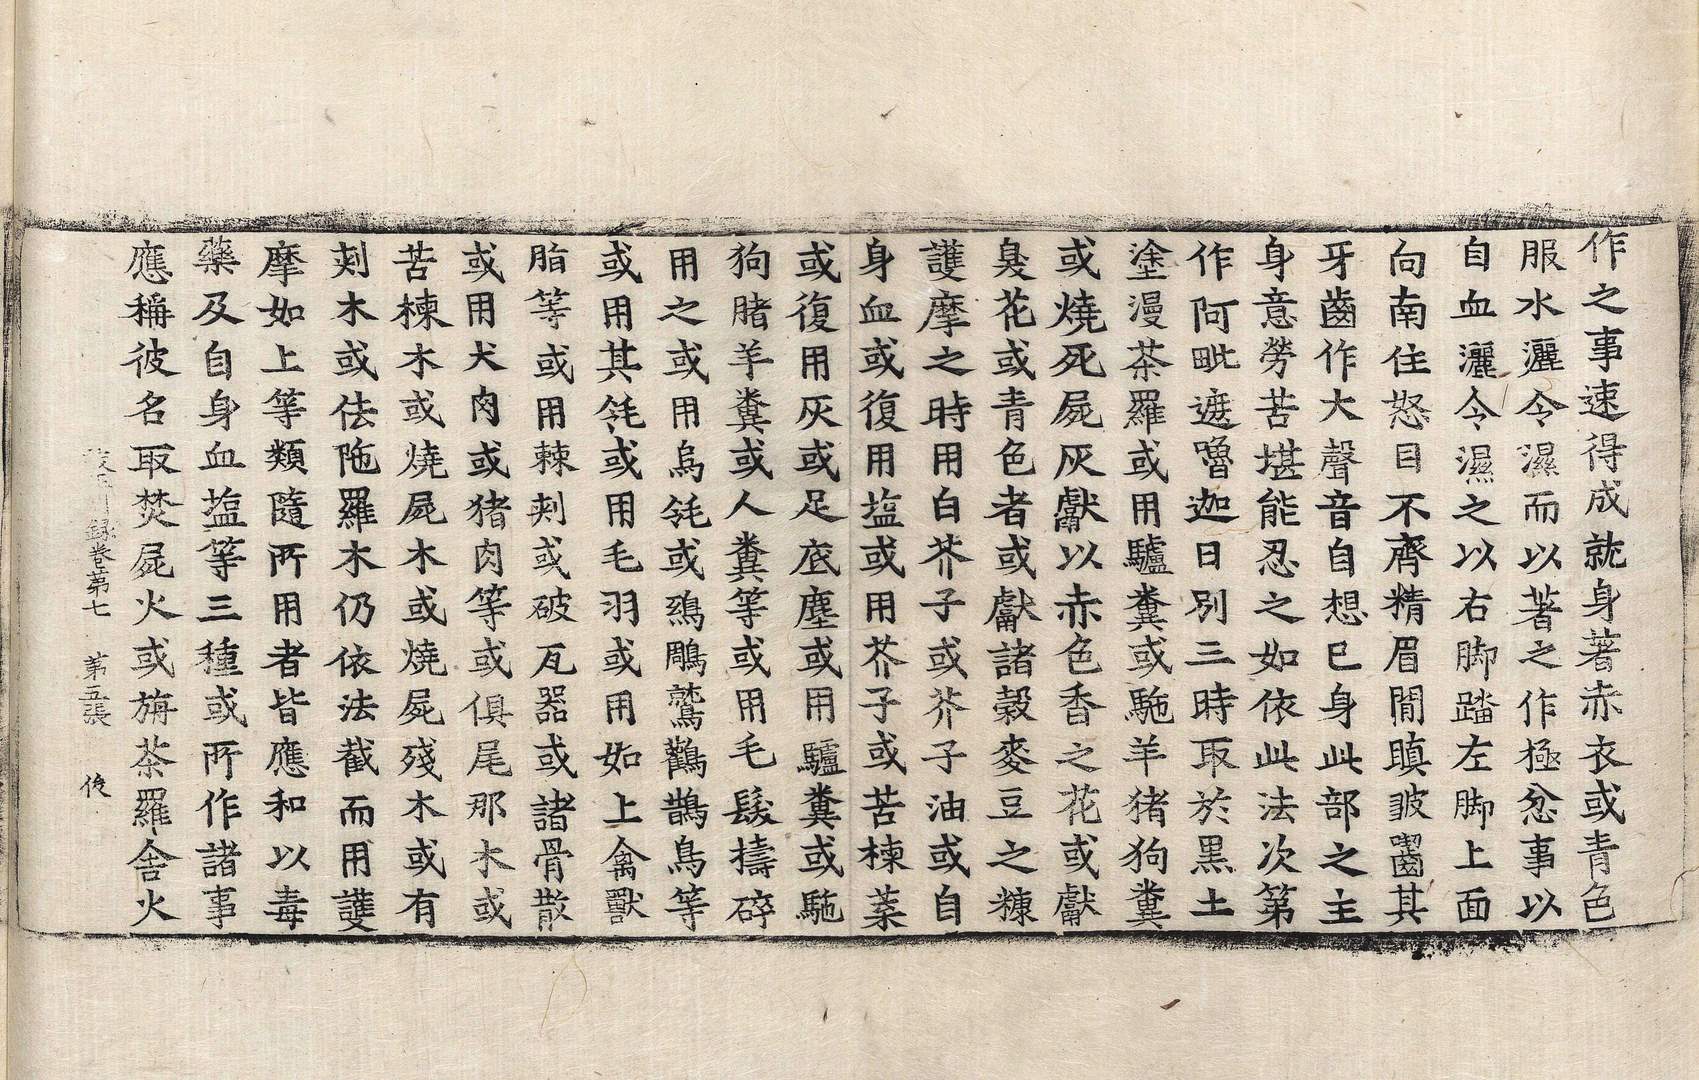 作之事速得成就身著赤衣或青色
服水灑令濕而以著之作極忿事以
自血灑令濕之以右脚踏左脚上面
向南住怒目不齊精眉間瞋皺齧其
牙齒作大聲音自想已身此部之主
身意勞苦堪能忍之如依此法次第
作阿毗遮嚕迦日別三時取於黑土
塗漫茶羅或用驢糞或駞羊猪狗糞
或燒死屍灰獻以赤色香之花或獻
臭花或青色者或獻諸穀麥豆之糠
護摩之時用白芥子或芥子油或自
身血或復用塩或用芥子或苦楝葉
或復用灰或足底塵或用驢糞或駞
狗賭羊糞或人糞等或用毛髮擣碎
用之或用烏㲋或鵄鵰鷲鸛鵲鳥等
或用其㲋或用毛羽或用如上禽獸
脂等或用棘刾或破瓦器或諸骨散
或用犬肉或猪肉等或俱尾那木或
苦楝木或燒屍木或燒屍殘木或有
刾木或佉陁羅木仍依法截而用護
摩如上等類隨所用者皆應和以毒
藥及自身血塩等三種或所作諸事
應稱彼名取焚屍火或旃茶羅舍火
録卷第七 第五張 俊